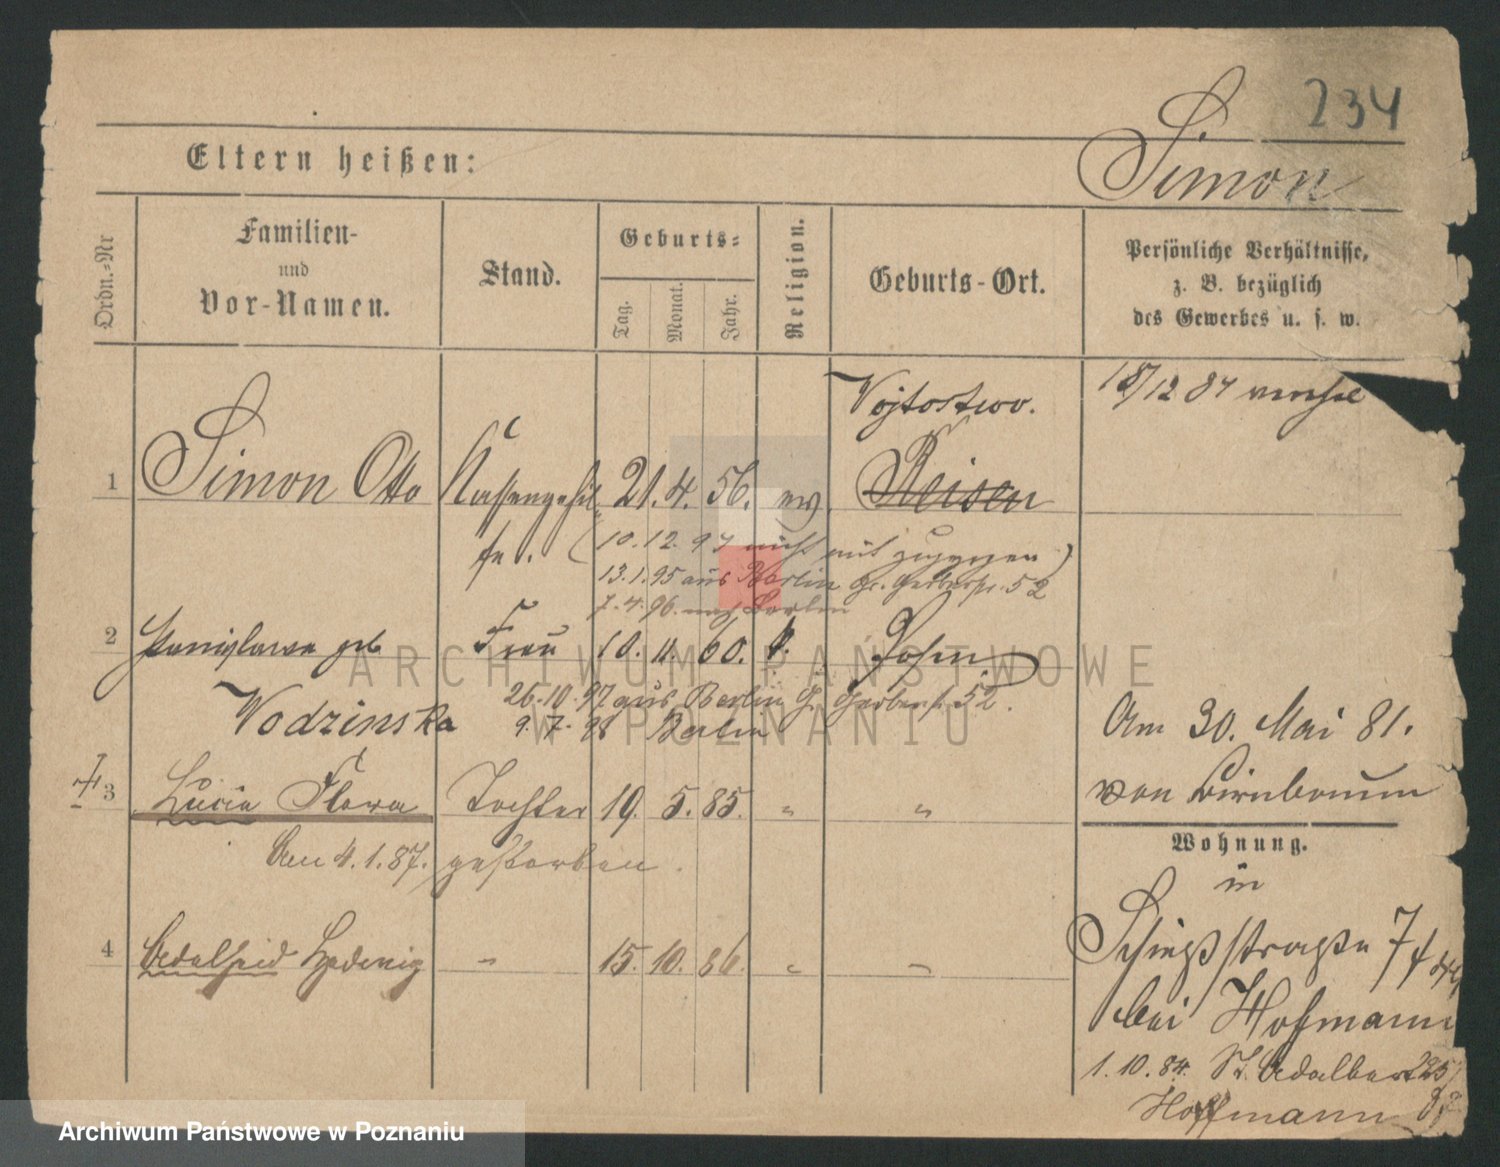 234
Eltern heißen:
Simon
Ordn.-Nr
Familien-
und
Vor-Namen.
Stand.
Geburts-
Tag.
Monat.
Jahr.
Religion.
Geburts-Ort.
Persönliche Verhältnisse,
z. B. bezüglich
des Gewerbes u. s. w.
Wojtostwo.
18/12 84
1 Simon Otto Kassengehil- 21. 4. 56. ev. Reisen
fe. (10. 12. 97 nicht mit zugezogen)
13. 1. 95 aus Berlin Gr. Gerberstr. 52
7. 4. 96. nach Berlin
2 Stanislawa geb Frau 10. 11. 60. k. Posen
26. 10. 97 aus Berlin Gr. Gerberstr. 52.
Wodzinska 9. 7. 98 Berlin
Am 30. Mai 81.
von Birnbaum
3 Lucia Flora Tochter 19. 5. 85. " "
Am 4. 1. 87. gestorben.
Wohnung.
in
Schießstraße 7
4 Adelheid Hedwig " 15. 10. 86. " "
bei Hofmann
1. 10. 84. St. Adalbert
Hoffmann
ARCHIWUM PAŃSTWOWE
W POZNANIU
Archiwum Państwowe w Poznaniu